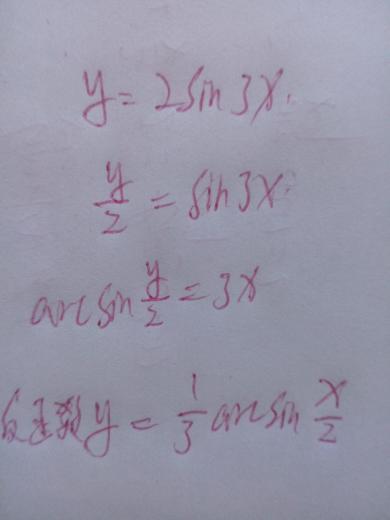 y = 2sin3x.
y/2 = sin3x
arcsin y/2 = 3x
反函数 y = 1/3 arcsin x/2